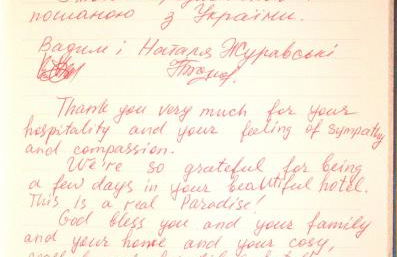 пошаною з України.
Вадим і Наталя Журавські
Thank you very much for your
hospitality and your feeling of sympathy
and compassion.
We're so grateful for being
a few days in your beautiful hotel.
This is a real Paradise!
God bless you and your family
and your home and your cosy,